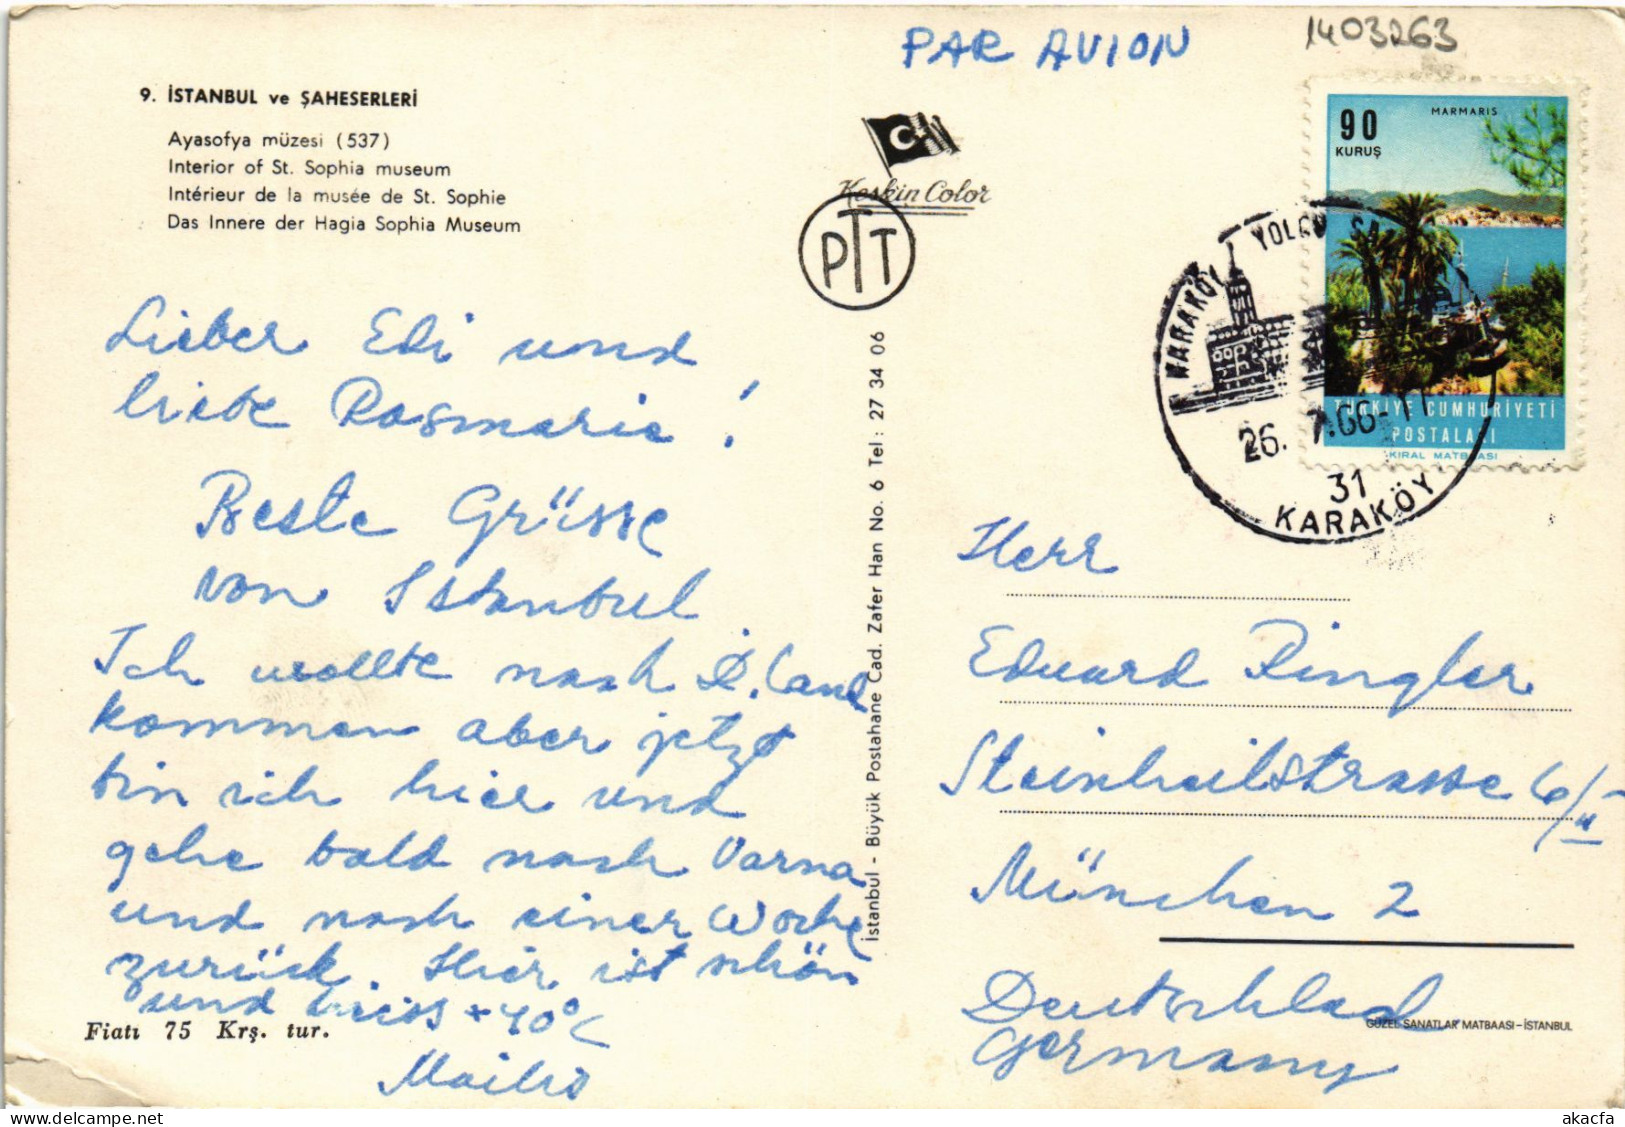 PAR AVION
1403263
9. İSTANBUL ve ŞAHESERLERİ
Ayasofya müzesi (537)
Interior of St. Sophia museum
Intérieur de la musée de St. Sophie
Das Innere der Hagia Sophia Museum
Keskin Color
PTT
90
KURUŞ
MARMARIS
TÜRKİYE CUMHURİYETİ
POSTALARI
KIRAL MATBAASI
KARAKÖY YOLCU
26. 7.66-11
31
KARAKÖY
Lieber Edi und
liebe Rosmarie!
Beste Grüsse
von Istanbul
Ich wollte nach D.Land
kommen aber jetzt
bin ich hier und
gehe bald nach Varna
und nach einer Woche
zurück. Hier ist schön
und heiss +40°C
Fiatı 75 Krş. tur.
İstanbul - Büyük Postahane Cad. Zafer Han No. 6 Tel: 27 34 06
Herr
Eduard Ringler
Steinheilstrasse 6/II
München 2
Deutschland
Germany
GÜZEL SANATLAR MATBAASI-İSTANBUL
akacfa